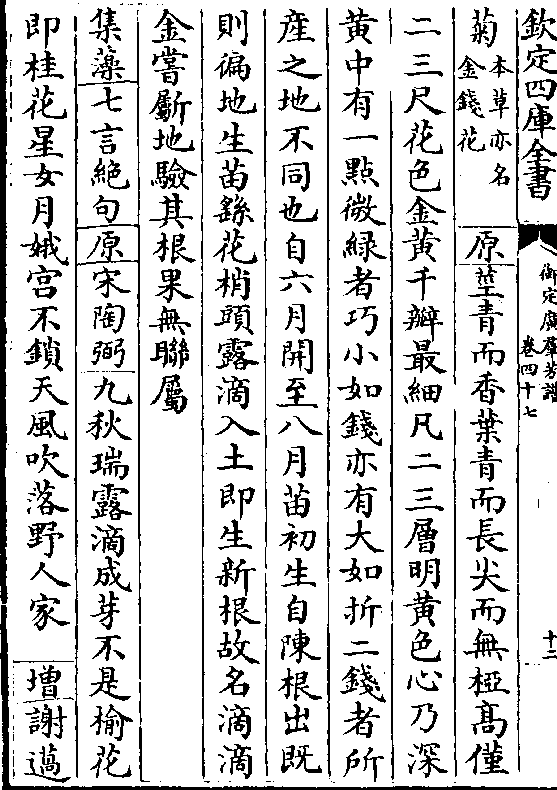 欽定四庫全書
御定廣羣芳譜
卷四十七
十三
菊本草亦名金錢花 原莖青而香葉青而長尖而無椏髙僅
二三尺花色金黄千瓣最細凡二三層明黄色心乃深
黄中有一點微緑者巧小如錢亦有大如折二錢者所
産之地不同也自六月開至八月苗初生自陳根出既
則徧地生苗繇花梢頭露滴入土即生新根故名滴滴
金嘗劚地驗其根果無聯屬
集藻七言絶句原宋陶弼九秋瑞露滴成芽不是榆花
即桂花星女月娥宫不鎖天風吹落野人家 増謝邁